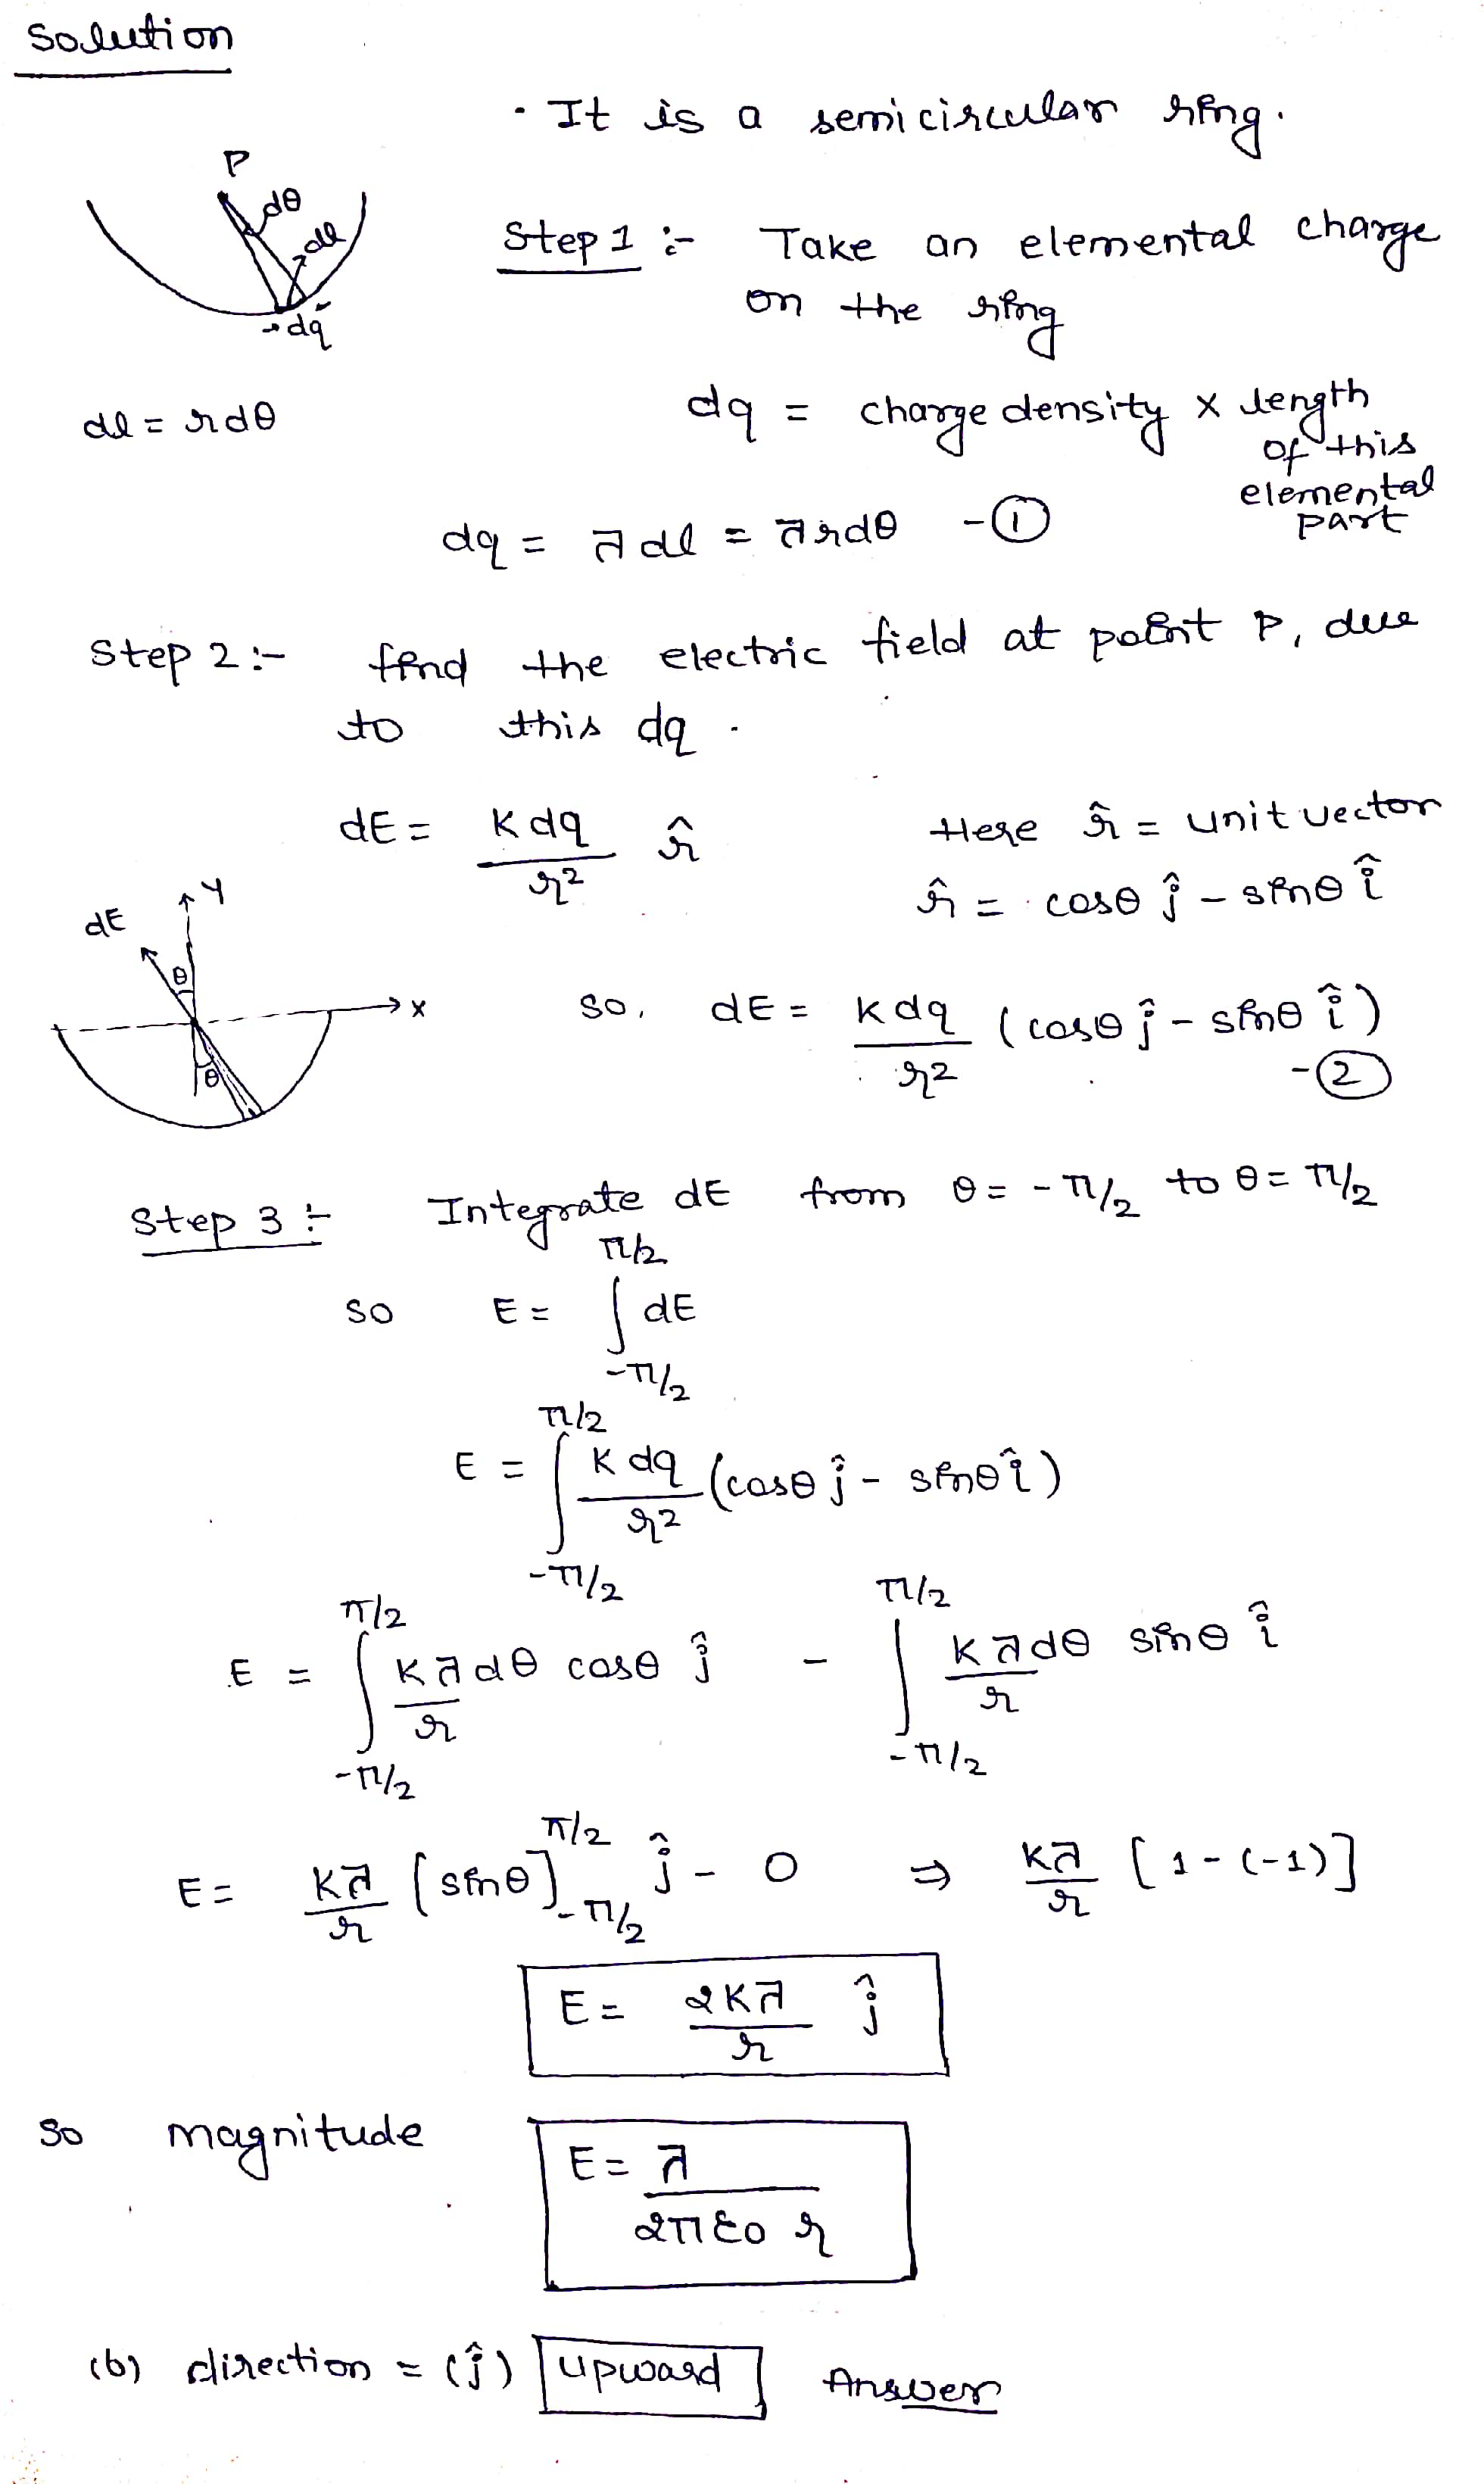 Solution
• It is a semicircular ring.
P
dθ
dl
dq
Step 1 :- Take an elemental charge
on the ring
dl = rdθ
dq = charge density x length
of this
elemental
part
dq = λ dl = λrdθ - ①
Step 2 :- find the electric field at point P, due
to this dq .
dE = K dq / r² r̂
Here r̂ = unit vector
r̂ = cosθ ĵ - sinθ î
dE
Y
θ
X
θ
so, dE = K dq / r² (cosθ ĵ - sinθ î)
- ②
Step 3 :- Integrate dE from θ = -π/2 to θ = π/2
so E = ∫_{-π/2}^{π/2} dE
E = ∫_{-π/2}^{π/2} K dq / r² (cosθ ĵ - sinθ î)
E = ∫_{-π/2}^{π/2} Kλdθ / r cosθ ĵ - ∫_{-π/2}^{π/2} Kλdθ / r sinθ î
E = Kλ / r [sinθ]_{-π/2}^{π/2} ĵ - 0 ⇒ Kλ / r [1 - (-1)]
E = 2Kλ / r ĵ
So magnitude
E = λ / 2πε0 r
(b) direction = (ĵ) upward Answer